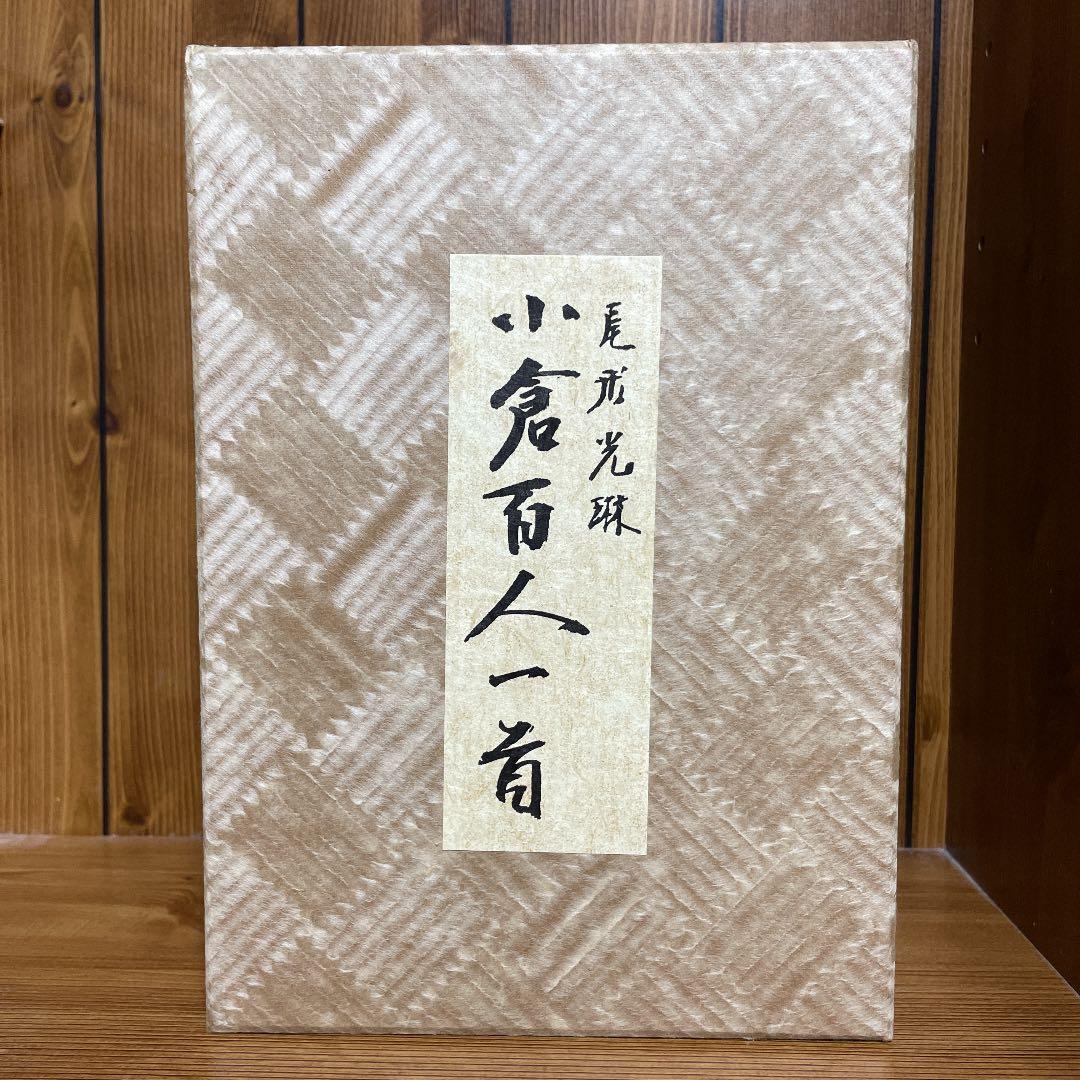 尾形光琳
小倉百人一首